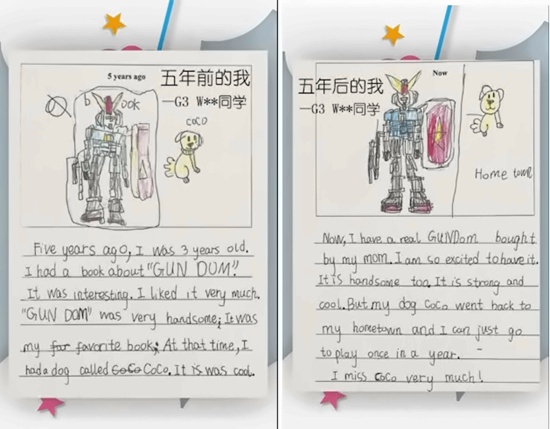 5 years ago
五年前的我
—G3 W**同学
book
coco
Five years ago, I was 3 years old.
I had a book about "GUN DOM".
It was interesting. I liked it very much.
"GUN DOM" was very handsome; It was
my far favorite book; At that time, I
had a dog called CoCo CoCo. It is was cool.
Now
五年后的我
—G3 W**同学
Home town
Now, I have a real GUNDom bought
by my mom. I am so excited to have it.
It is handsome too. It is strong and
cool. But my dog CoCo went back to
my hometown and I can just go
to play once in a year.
I miss CoCo very much!